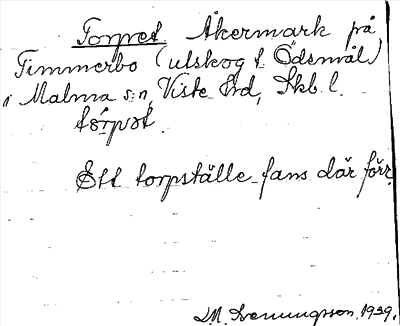 Torpet Åkermark på
Timmerbo (utskog t. Ödsmål)
i Malma s:n, Viste hd, Skb. l.
tórpət.
Ett torpställe fans där förr.
1939.